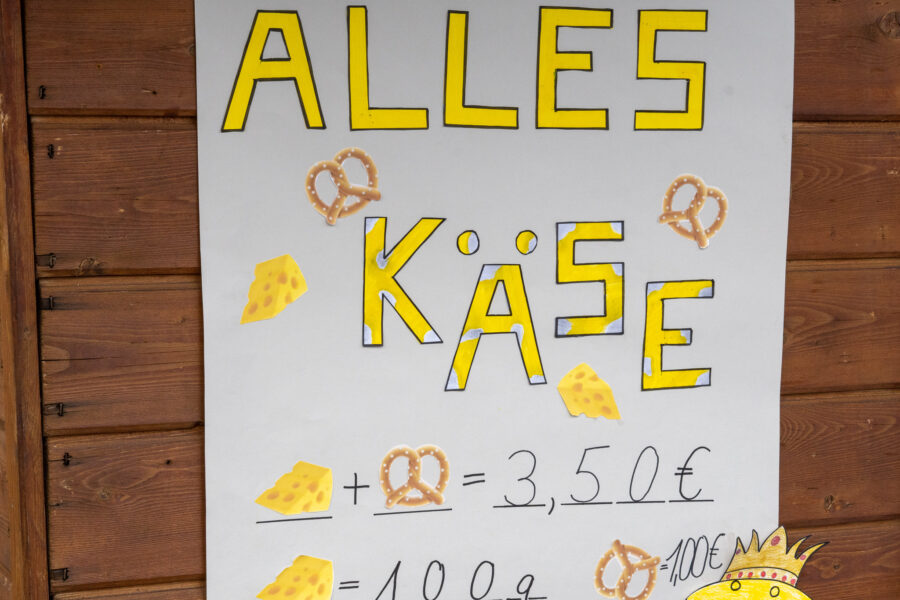 ALLES
KÄSE
+ = 3,50€
= 100g
=1,00€